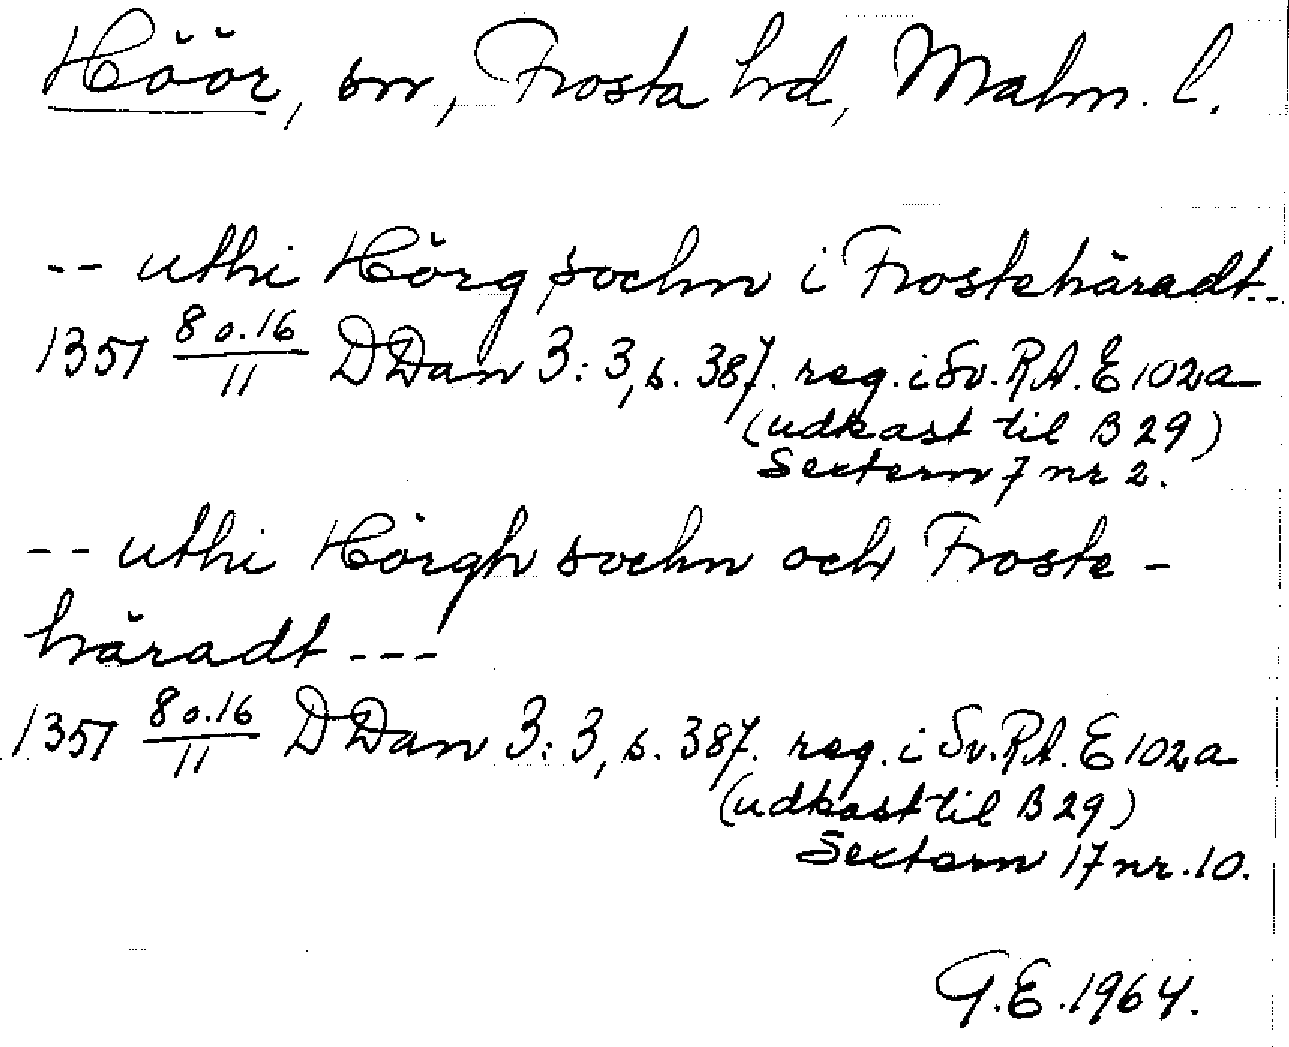 Höör, sn, Frosta hd, Malm. l.
-- uthi Hörg sochn i Frostehäradt..
1351 8 o.16/11 DDan 3:3, s. 387. reg. i Sv. RA. E 102a
(udkast til B 29)
Sextern 7 nr 2.
-- uthi Hörgh sochn och Froste-
häradt ---
1351 8 o.16/11 DDan 3:3, s. 387. reg. i Sv. RA. E 102a
(udkast til B 29)
Sextern 17 nr. 10.
G.E. 1964.